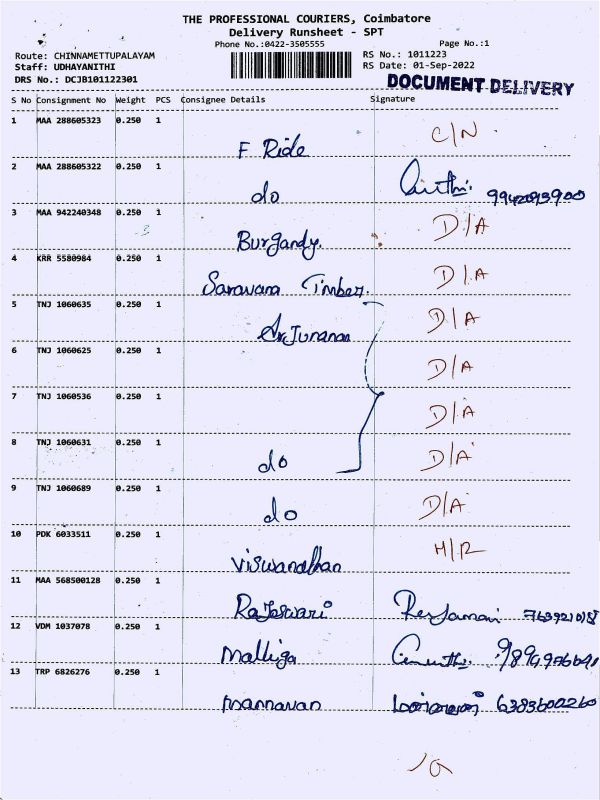 THE PROFESSIONAL COURIERS, Coimbatore
Delivery Runsheet - SPT
Phone No.:0422-3505555 Page No.:1
Route: CHINNAMETTUPALAYAM RS No.: 1011223
Staff: UDHAYANITHI RS Date: 01-Sep-2022
DRS No.: DCJB101122301 DOCUMENT DELIVERY
S No Consignment No Weight PCS Consignee Details Signature
1 MAA 288605323 0.250 1
F Ride C/N
2 MAA 288605322 0.250 1
do
3 MAA 942240348 0.250 1
Burgandy. D/A
4 KRR 5580984 0.250 1
Saravana Timber. D/A
5 TNJ 1060635 0.250 1
D/A
6 TNJ 1060625 0.250 1
D/A
7 TNJ 1060536 0.250 1
D/A
8 TNJ 1060631 0.250 1
do D/A
9 TNJ 1060689 0.250 1
do D/A
10 PDK 6033511 0.250 1
Viswanathan
11 MAA 568500128 0.250 1
Rajeswari
12 VDM 1037078 0.250 1
Malliga
13 TRP 6826276 0.250 1
Mannavan 6383600260